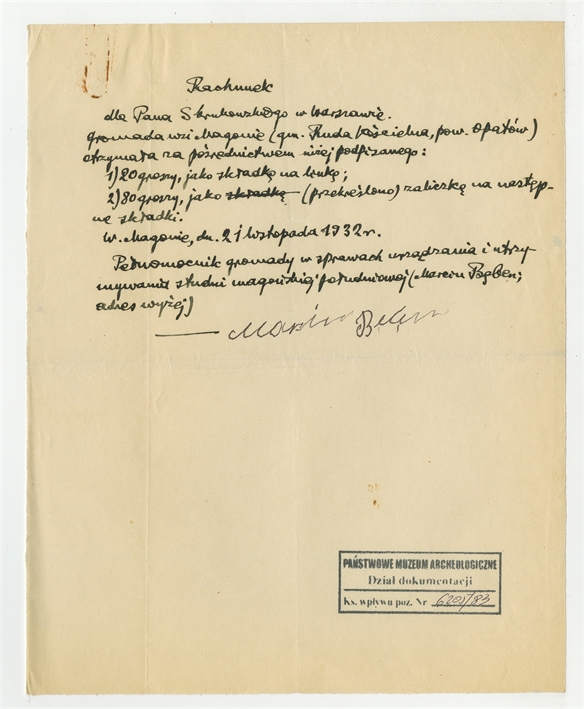 Rachunek
dla Pana S. Krukowskiego w Warszawie.
Gromada wsi Magonie (gm. Ruda Kościelna, pow. Opatów)
otrzymała za pośrednictwem niżej podpisanego:
1) 20 groszy, jako składkę na linkę;
2) 80 groszy, jako składkę (przekreślono) zaliczkę na następ-
ne składki.
W Magonie, dn. 21 listopada 1932 r.
Pełnomocnik gromady w sprawach urządzania i utrzy
mywania studni magońskiej południowej (Marcin Bęben;
adres wyżej)
— Marcin Bęben
PAŃSTWOWE MUZEUM ARCHEOLOGICZNE
Dział dokumentacji
Ks. wpływu poz. Nr 6205/83